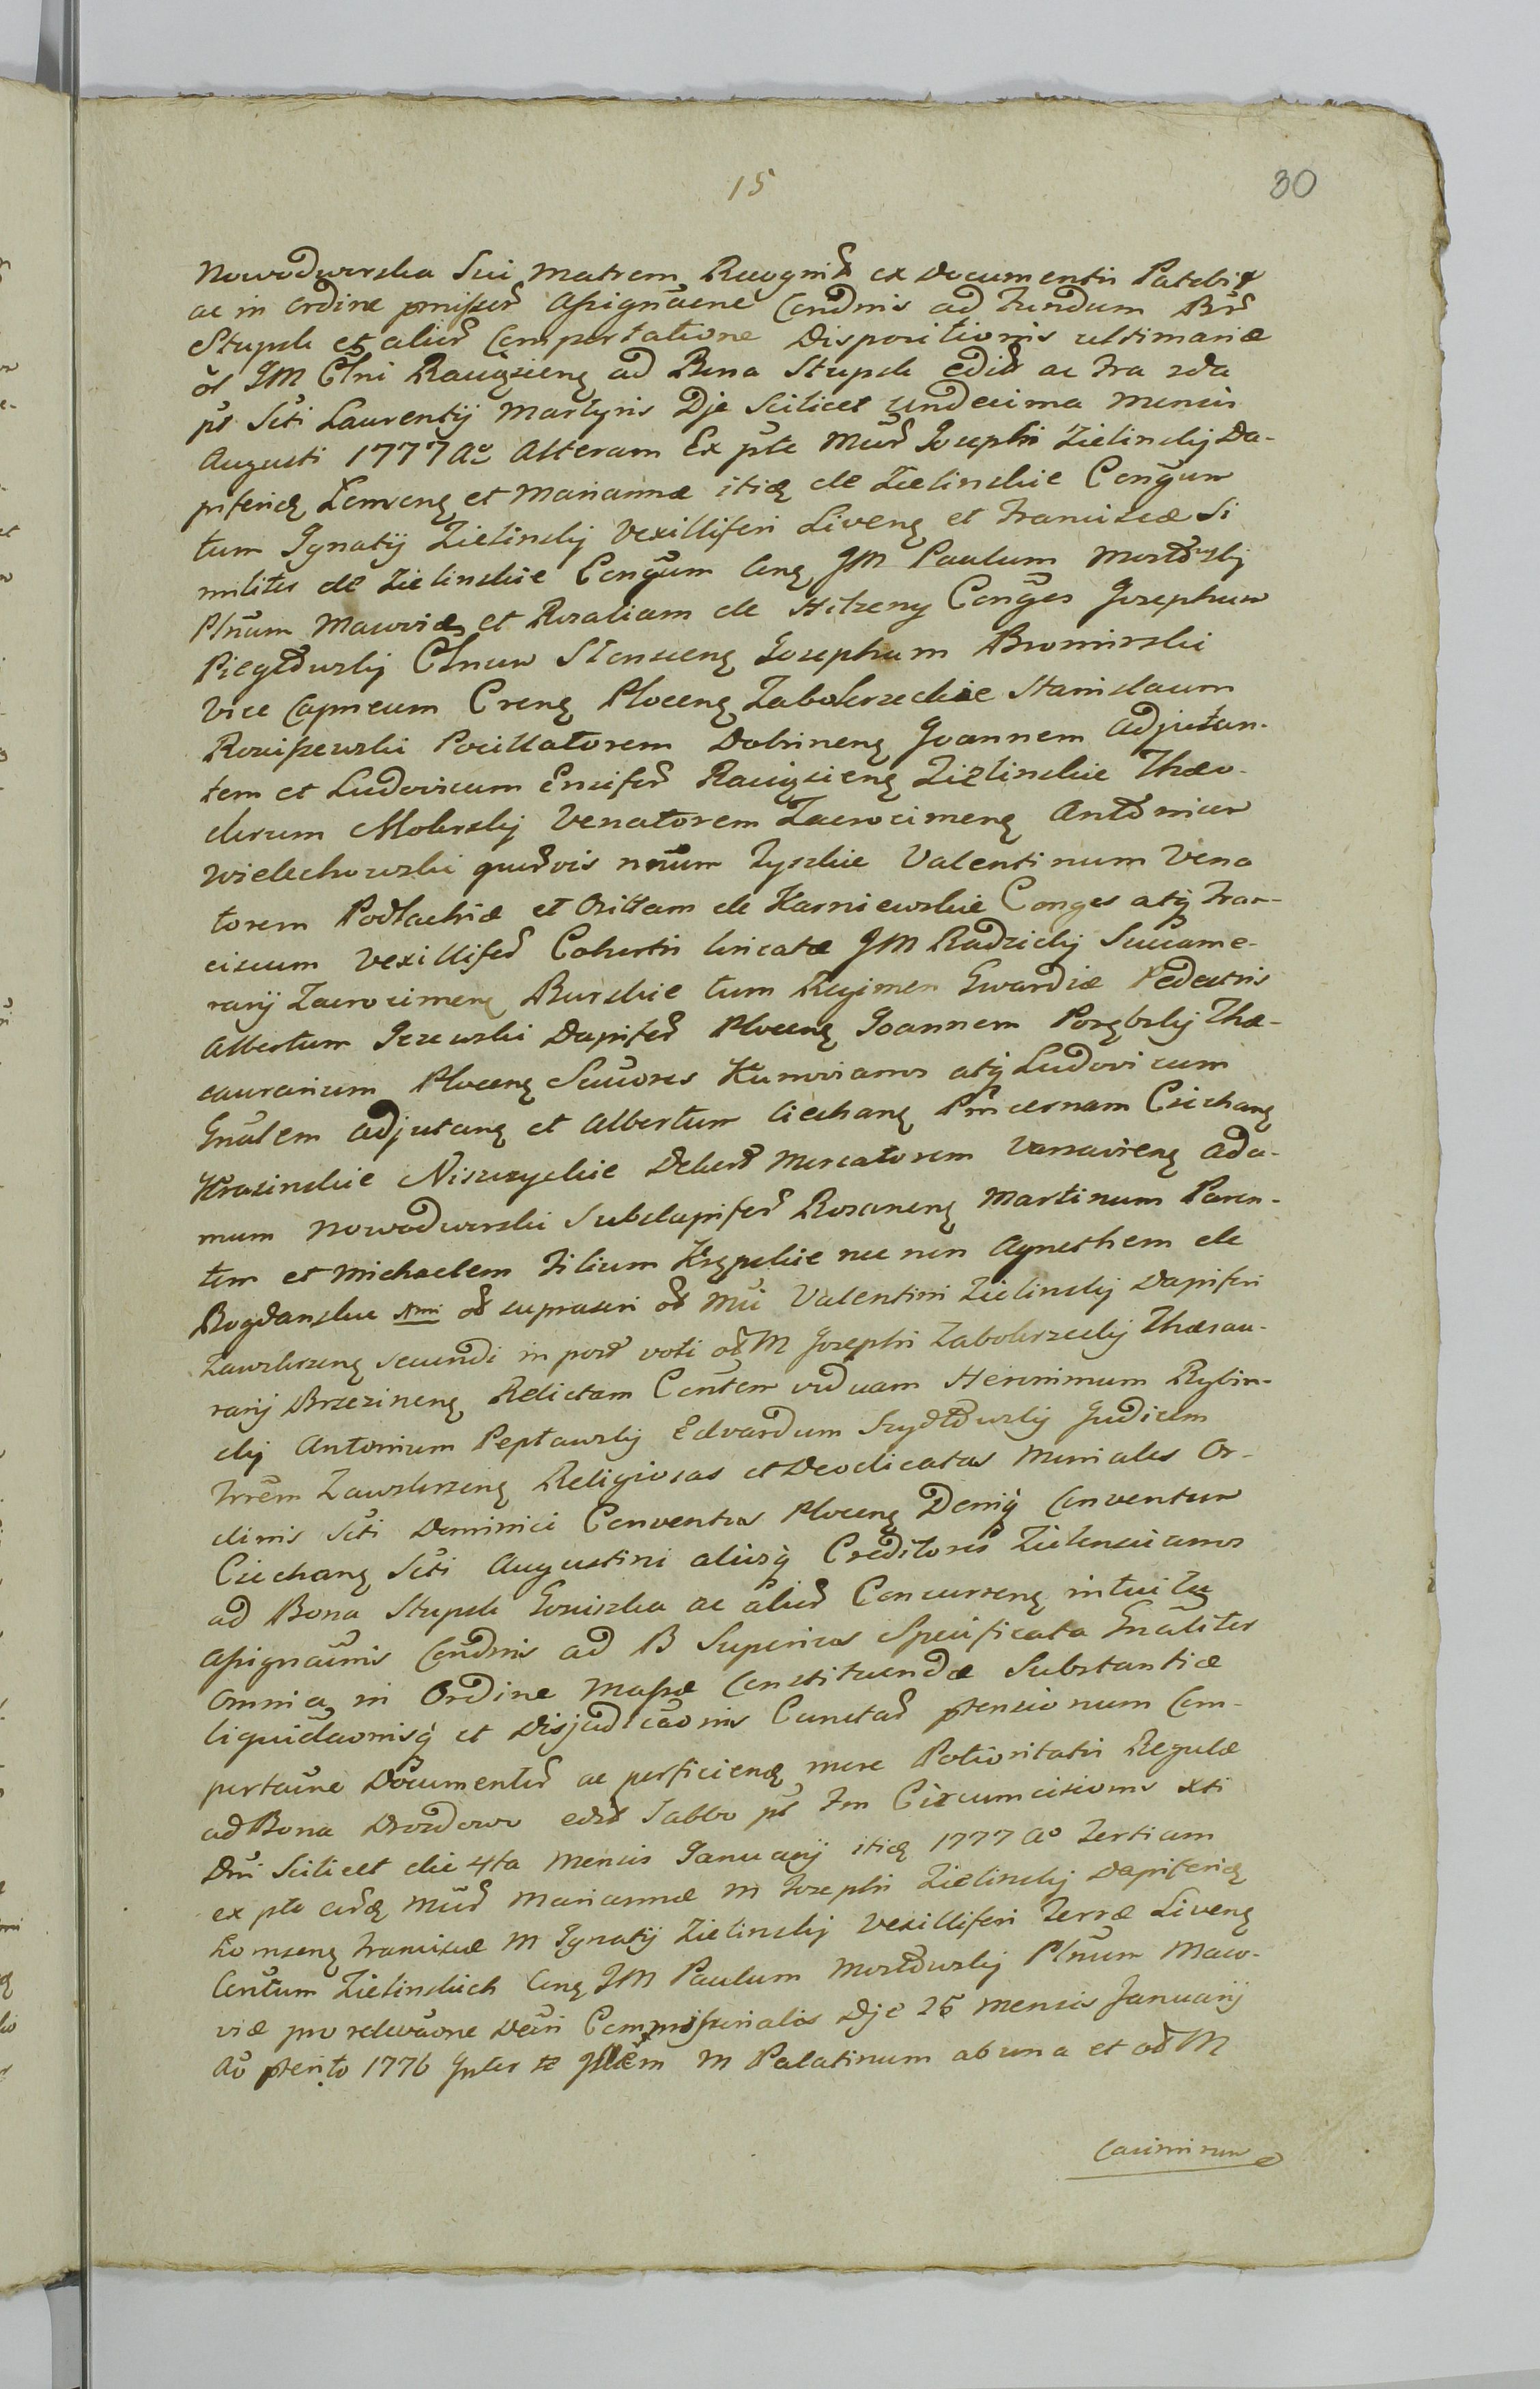 15
30
Nowodworska Sui Matrem Recognit ex Documentis Patebit
ac in ordine pmissor Assignaone Condnis ad Fundum Bor
Stupsk et alior Comportatione Dispositionis ultimariæ
ol JM Clni Raciązieng ad Bona Stupsk edit ac Fra 2da
pt Scti Laurentij Martyris Dje Scilicet undecima Mensis
Augusti 1777 Ao Alteram Ex pte Mcor Josephi Zielinskij Da-
piferidę Łomzeng et Mariannæ itidę de Zielinskie Congum
tum Jgnatij Zielinskij Vexilliferi Liveng et Franciscæ Si
milites de Zielinskie Congum Cong JM Paulum Mostowskj
Plnum Masoviæ et Rosaliam de Hilzeny Conges Josephum
Piegłowskij Clnum Stenzieng Josephum Bromirski
Vice Capneum Creng Ploceng Zabokrzeckie Stanislaum
Rosciszewski Pocillatorem Dobrineng Joannem Adjutan-
tem et Ludovicum Ensifer Raciązieng Zielinskie Theo-
dorum Mokrskij Venatorem Zacrocimeng Antonium
Wielechowski quorvis nnum Zyskie Valentinum Vena
torem Podlachiæ et Orillam de Karniewskie Conges atq Fran-
ciscum Vexillifer Cohortis loricatæ JM Radzickij Succame-
rarij Zacrocimeng Burskie tum Regimen Gwardiæ Pedestris
Albertum Jezewski Dapifer Ploceng Joannem Porębskij The-
saurarium Ploceng Succres Kunovianos atq Ludovicum
Gnalem Adjutang et Albertum Ciechang Pincernam Ciechang
Krasinskie Niszczyckie Dekert Mercatorem Varsavieng Ada-
mum Nowodworski Subdapifer Rozaneng Martinum Paren-
tem et Michaelem Filium Krępskie nec non Agnethem de
Bogdanskie 1mi ol suprascri ol Mci Valentini Zielinskij Dapiferi
Zawskrzeng secundi in post voti ol M Josephi Zabokrzeckij Thesau-
rarij Brzezineng Relictam Contem viduam Heronimum Rybin-
skij Antonium Peptawskij Edvardum Szydłowskij Judicem
Trrem Zawskrzeng Religiosas et Deodicatas Moniales Or-
dinis Scti Dominici Conventus Ploceng Deniq Conventum
Ciechang Scti Augustini aliosq Creditores Zielenscianos
ad Bona Stupsk Goniszka ac alior Concurreng intuitu
Assignaonis Condnis ad B Superius Specificata Gnaliter
Omnia in Ordine Massæ Constituendæ Substantiæ
liquidaonisq et Disjudicaonis Cunctar ptensionum Com-
portaone Documentor ac perficiendę more Potioritatis Regulæ
ad Bona Drozdowo edit Sabbo pt Fm Circumcisionis Xti
Dni Scilicet die 4ta Mensis Januarij itidę 1777 Ao Tertiam
ex pte eordę Mcor Mariannæ M Josephi Zielinskij Dapiferidę
Łomzeng Franciscæ M Jgnatij Zielinskij Vexilliferi Terræ Liveng
Contum Zielinskich Cong JM Paulum Mostowskij Plnum Maso-
viæ pro relevaone Decri Commissorialis Dje 25 Mensis Januarij
Ao pterito 1776 Jnter Jllem M Palatinum ab una et ol M
Casimirum